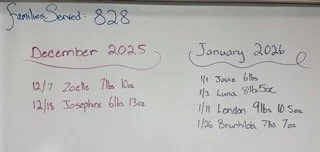 Families Served: 828
December 2025
12/7 Zoelle 7lbs 10oz
12/18 Josephine 6lbs 13oz
January 2026
1/1 Jovie 6lbs
1/3 Luna 8lb 5oz
1/11 London 9lbs 10.5oz
1/26 Brunhilda 7lbs 7oz